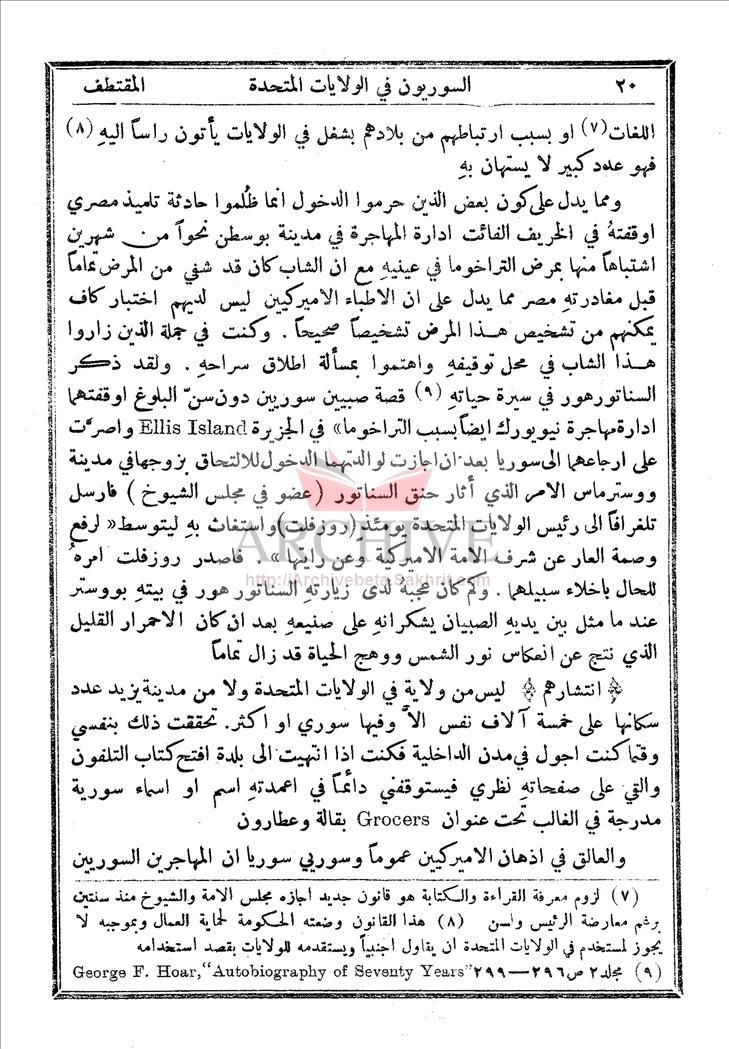 ٢٠ السوريون في الولايات المتحدة المقتطف
اللغات(٧) او بسبب ارتباطهم من بلادهم بشغل في الولايات يأتون راساً اليهِ (٨)
فهو عدد كبير لا يستهان بهِ
ومما يدل على كون بعض الذين حرموا الدخول انما ظُلموا حادثة تلميذ مصري
اوقفتهُ في الخريف الفائت ادارة المهاجرة في مدينة بوسطن نحواً من شهرين
اشتباهاً منها بمرض التراخوما في عينيهِ مع ان الشاب كان قد شفي من المرض تماماً
قبل مغادرتهِ مصر مما يدل على ان الاطباء الاميركيين ليس لديهم اختبار كاف
يمكنهم من تشخيص هذا المرض تشخيصاً صحيحاً . وكنت في جملة الذين زاروا
هذا الشاب في محل توقيفهِ واهتموا بمسألة اطلاق سراحهِ . ولقد ذكر
السناتور هور في سيرة حياتهِ (٩) قصة صبيين سوريين دون سنّ البلوغ اوقفتهما
ادارة مهاجرة نيويورك ايضاً بسبب التراخوما» في الجزيرة Ellis Island واصرّت
على ارجاعهما الى سوريا بعد ان اجازت لوالدتهما الدخول للالتحاق بزوجها في مدينة
ووسترماس الامر الذي أثار حنق السناتور (عضو في مجلس الشيوخ) فارسل
تلغرافاً الى رئيس الولايات المتحدة يومئذ (روزفلت) واستغاث بهِ ليتوسط «لرفع
وصمة العار عن شرف الامة الاميركية وعن رايتها» . فاصدر روزفلت امرهُ
للحال باخلاء سبيلهما . ولم كان عجبهُ لدى زيارتهِ السناتور هور في بيتهِ بووستر
عند ما مثل بين يديهِ الصبيان يشكرانهِ على صنيعهِ بعد ان كان الاحمرار القليل
الذي نتج عن انعكاس نور الشمس ووهج الحياة قد زال تماماً
﴿ انتشارهم ﴾ ليس من ولاية في الولايات المتحدة ولا من مدينة يزيد عدد
سكانها على خمسة آلاف نفس الاَّ وفيها سوري او اكثر. تحققت ذلك بنفسي
وقتما كنت اجول في مدن الداخلية فكنت اذا انتهيت الى بلدة افتح كتاب التلفون
والتي على صفحاتهِ نظري فيستوقفني دائماً في اعمدتهِ اسم او اسماء سورية
مدرجة في الغالب تحت عنوان Grocers بقالة وعطارون
والعالق في اذهان الاميركيين عموماً وسوريي سوريا ان المهاجرين السوريين
(٧) لزوم معرفة القراءة والكتابة هو قانون جديد اجازه مجلس الامة والشيوخ منذ سنتين
برغم معارضة الرئيس ولسن (٨) هذا القانون وضعته الحكومة لحماية العمال وبموجبه لا
يجوز لمستخدم في الولايات المتحدة ان يقاول اجنبياً ويستقدمه للولايات بقصد استخدامه
(٩) مجلد ٢ ص ٢٩٦—٢٩٩ George F. Hoar, "Autobiography of Seventy Years"
ARCHIVE
http://Archivebeta.Sakhrit.com